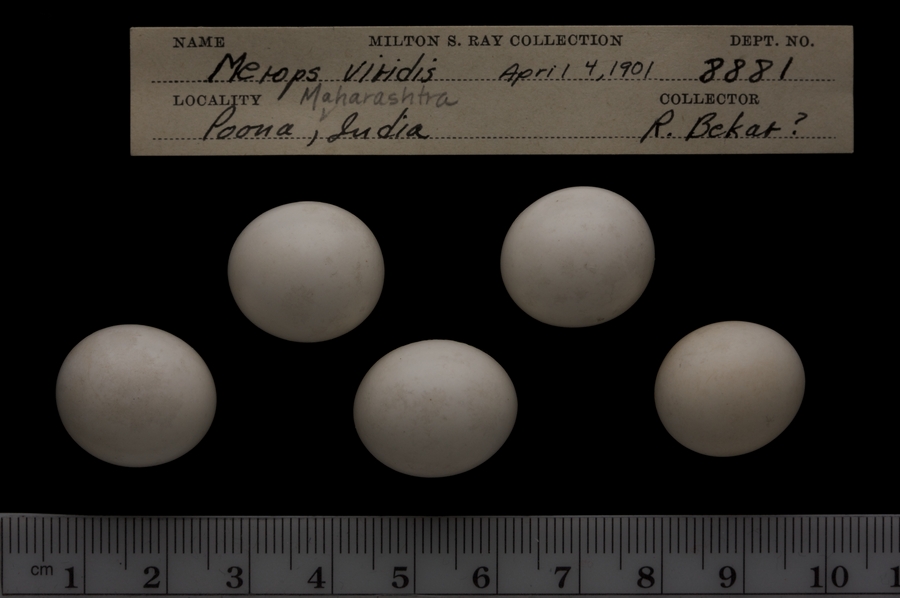 NAME MILTON S. RAY COLLECTION DEPT. NO.
Merops viridis April 4, 1901 8881
LOCALITY Maharashtra COLLECTOR
Poona, India R. Bekar?
cm 1 2 3 4 5 6 7 8 9 10 1